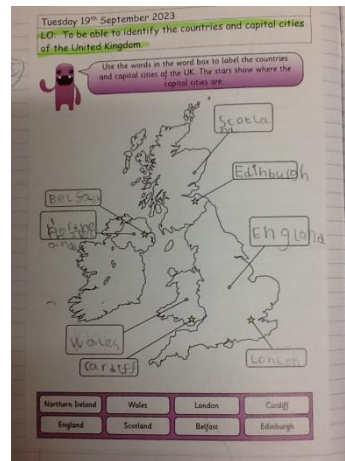 Tuesday 19th September 2023
LO: To be able to identify the countries and capital cities
of the United Kingdom.
Use the words in the word box to label the countries
and capital cities of the UK. The stars show where the
capital cities are
Scotla
Edinburgh
England
Wales
Cardiff
London
Northern Ireland
Wales
London
Cardiff
England
Scotland
Belfast
Edinburgh